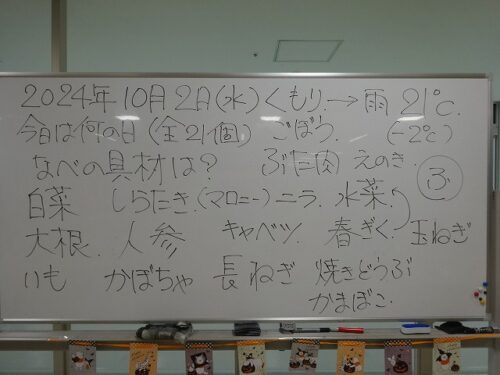 2024年10月2日(水)くもり→雨 21℃.
今日は何の日(全21個) ごぼう. (-2℃)
なべの具材は? ぶた肉 えのき. ふ
白菜 しらたき.(マロニー)ニラ. 水菜
大根. 人参 キャベツ. 春ぎく. 玉ねぎ
いも かぼちゃ 長ねぎ 焼きどうふ
かまぼこ.